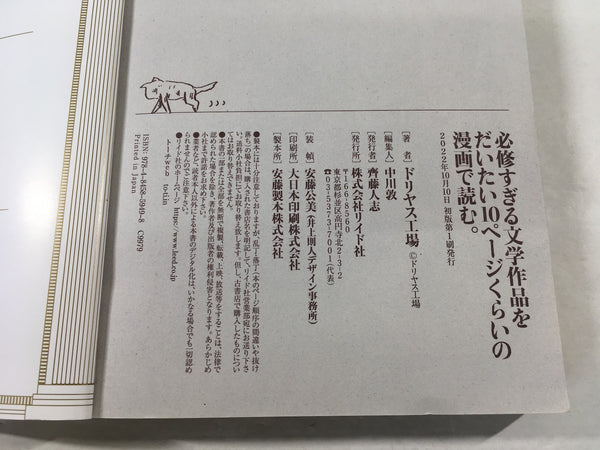 必修すぎる文学作品を
だいたい10ページくらいの
漫画で読む。
2022年10月10日 初版第1刷発行
[著 者] ドリヤス工場
©ドリヤス工場
[編集人] 中川敦
[発行者] 齊藤人志
[発行所] 株式会社リイド社
〒166-8560
東京都杉並区高円寺北2-3-2
☎03-5373-7001(代表)
[装 幀] 安藤公美(井上則人デザイン事務所)
[印刷所] 大日本印刷株式会社
[製本所] 安藤製本株式会社
●製本には十分注意しておりますが、乱丁・落丁(本のページ順序の間違いや抜け
落ち)の場合は、購入された書店名を明記して、リイド社営業部宛にお送り下さ
い。送料小社負担にてお取り替え致します。但し、古書店で購入したものについ
てはお取り替えできません。
●本書の一部または全部を無断で複製、転載、上映、放送等をすることは、法律で
認められた場合を除き、著作者及び出版者の権利侵害となります。あらかじめ
小社まで許諾をお求め下さい。
●業者など、読者本人以外による本書のデジタル化は、いかなる場合でも一切認め
られませんのでご注意下さい。
●リイド社のホームページ https://www.leed.co.jp
トーチweb to-ti.in
ISBN 978-4-8458-5949-8 C9979
Printed in Japan